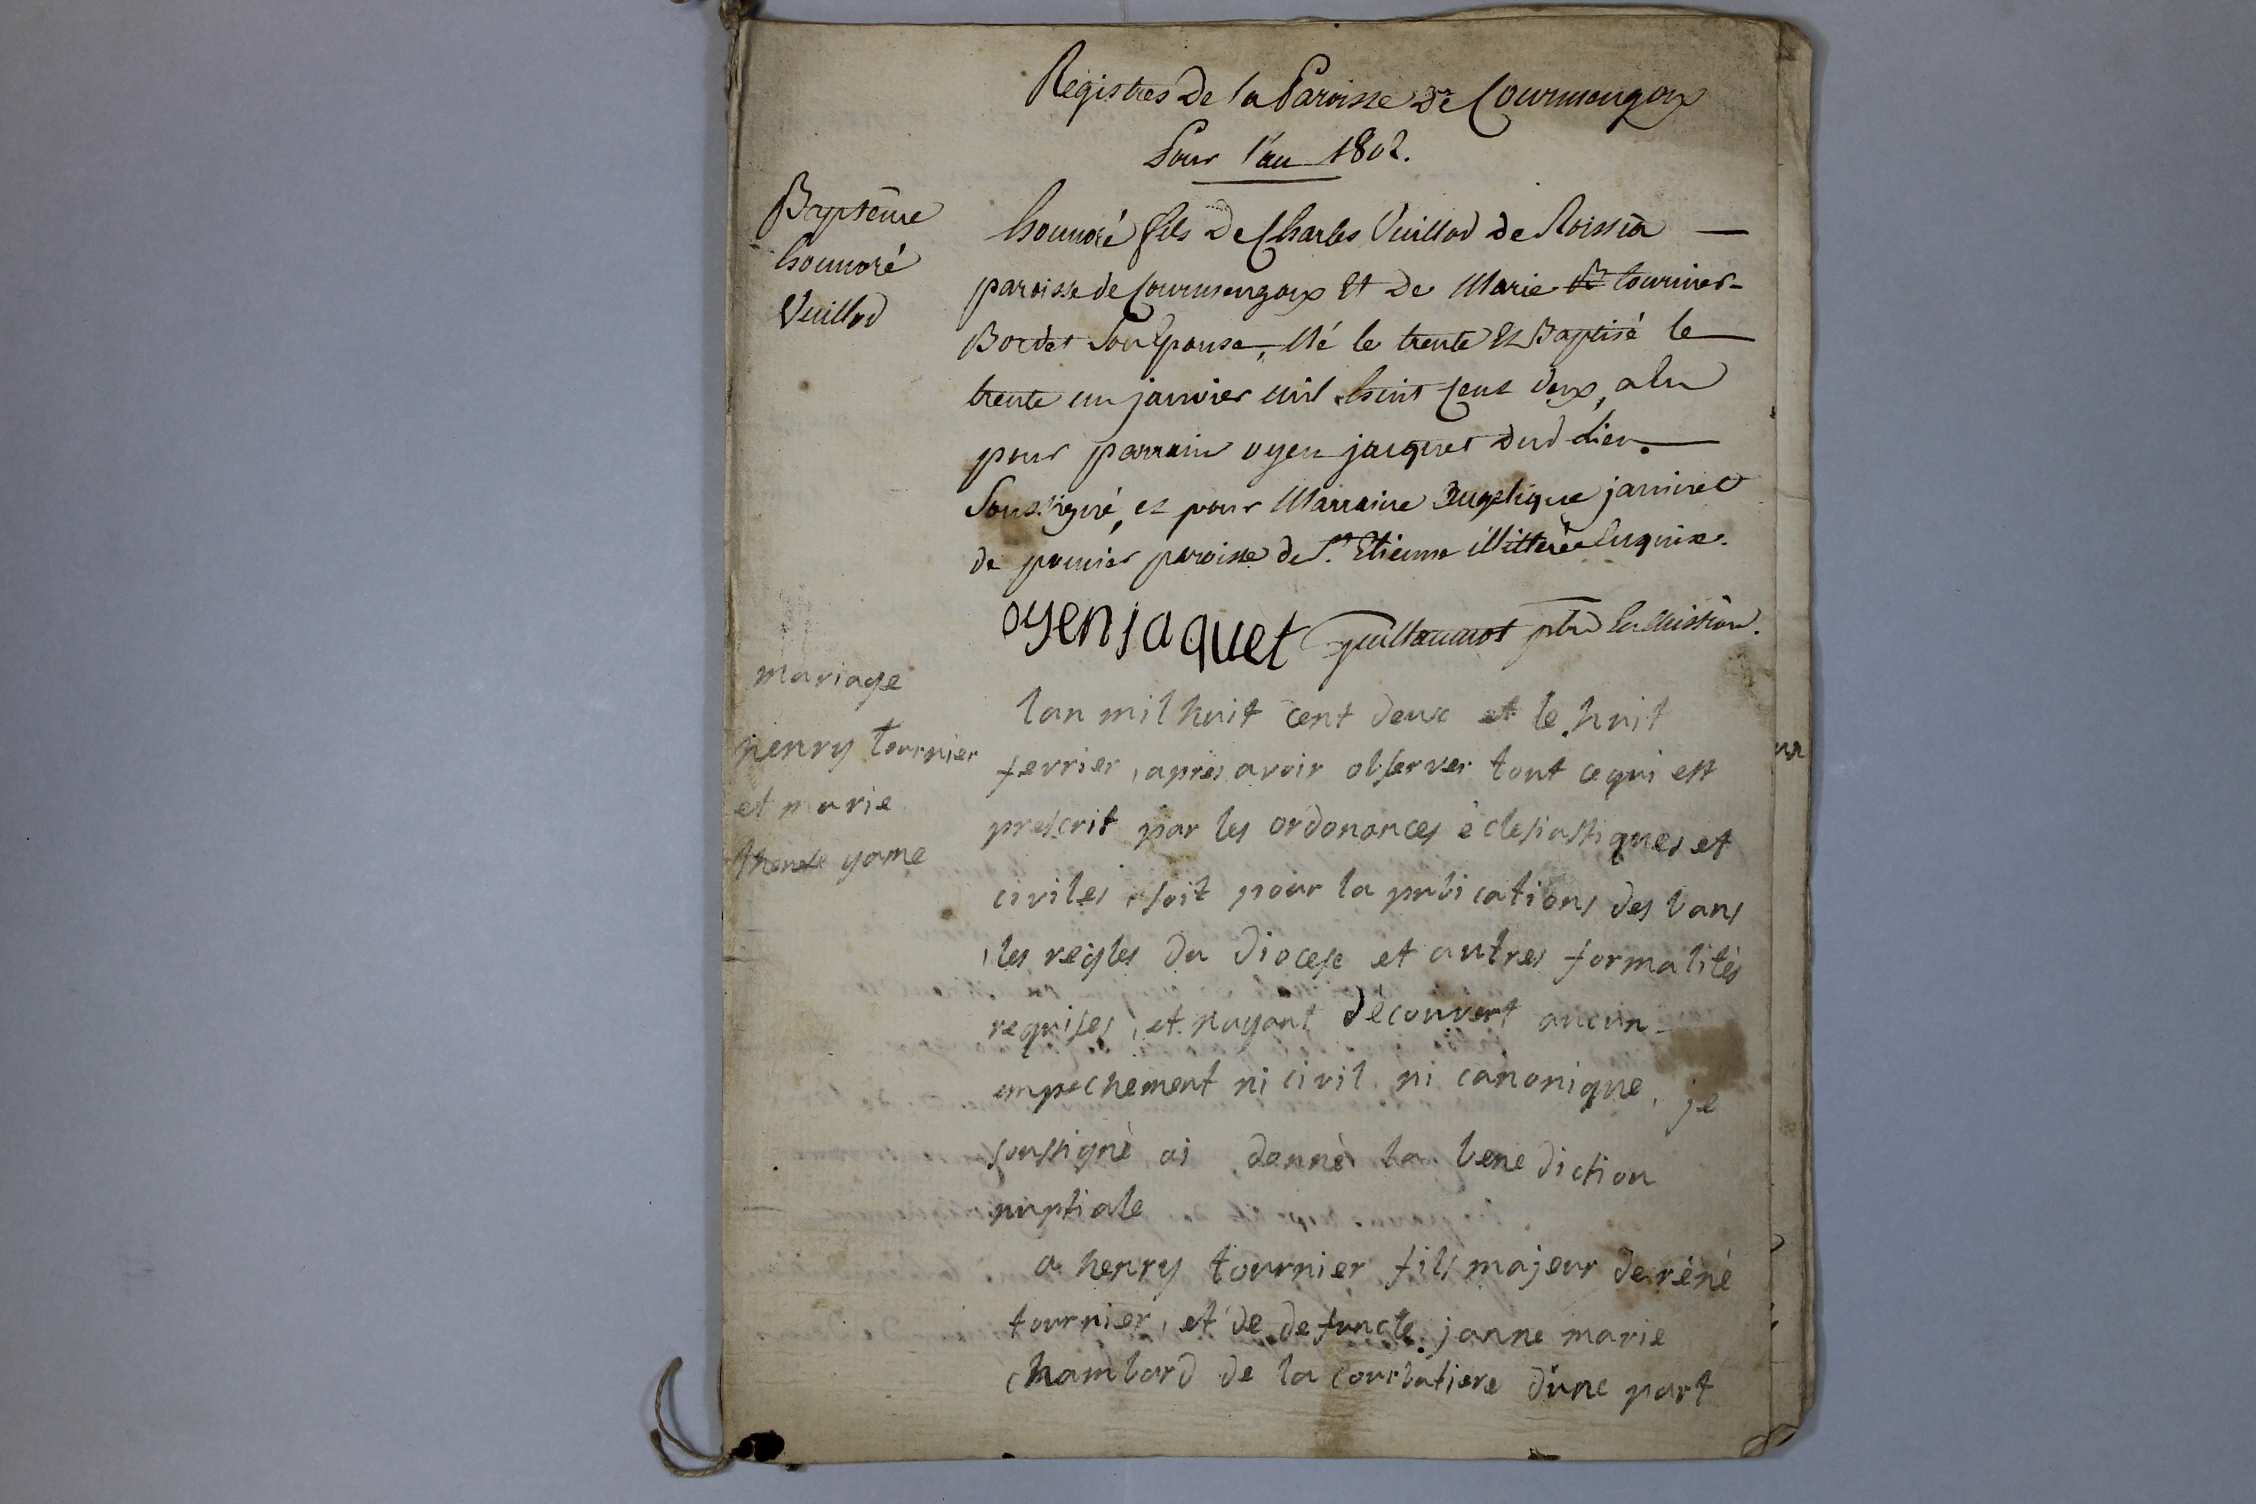 Registres de la Paroisse de Courmengoux
Pour l'an 1802.
Baptême
honnoré
Vuillod
honnoré fils de Charles Vuillod de Roissia
paroisse de Courmengoux Et de Marie tournier-
Bordet Son Epouse, Né le trente Et Baptisé le
trente un janvier mil huit cent deux, a Eu
pour parrain oyen jacquet dud lieu.
Soussigné, et pour Marraine Angelique janinet
de ponnier paroisse de St. Etienne illitterée Enquise.
oyen jaquet guillaumot ptre En Mission.
mariage
henry tournier
et marie
therese yame
lan mil huit cent deux et le huit
fevrier, après avoir observer tout ce qui est
prescrit par les ordonances èclesiastiques et
civiles, soit pour la publications des bans
, les reigles du diocese et autres formalitès
requises, et nayant dècouvert aucun
empechement ni civil ni canonique, je
soussignè ai donnèr la benediction
nuptiale
a henry tournier fils majeur de rènè
tournier, et de defuncte janne marie
chambard de la courbatiere dune part